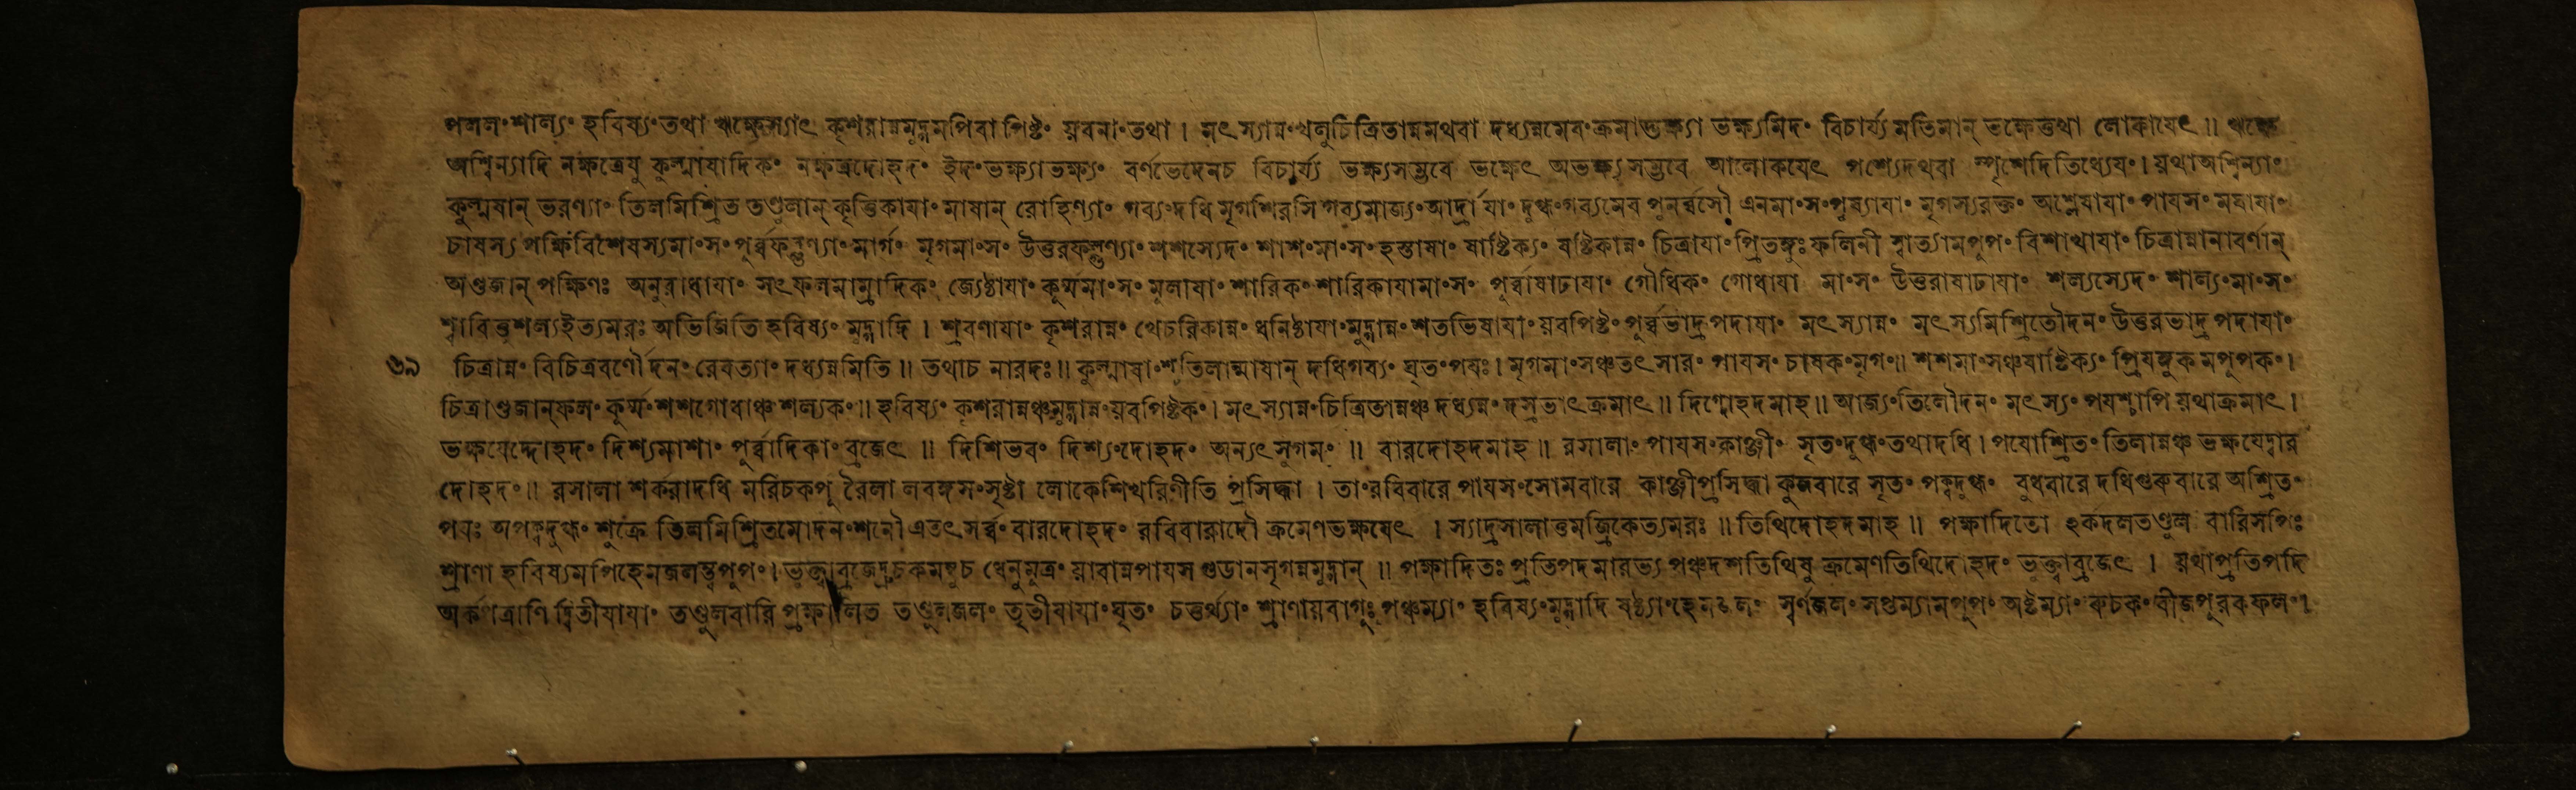 পললং শাল্যং হবিষ্যং তথা ঋক্ষেস্যাৎ কৃশরান্নমুদ্গমপিবা পিষ্টং য়বনাং তথা । মৎস্যান্নং খলুচিত্রিতান্নমথবা দধ্যন্নমেবং ক্রমাদ্ভক্ষ্যা ভক্ষ্যমিদং বিচার্য্য মতিমান্ ভক্ষেত্তথা লোকায়েৎ ॥
অশ্বিন্যাদি নক্ষত্রেষু কুল্মাষাদিকং নক্ষত্রদোহদং ইদং ভক্ষ্যাভক্ষ্যং বর্ণভেদেনচ বিচার্য্য ভক্ষ্যসম্ভবে ভক্ষেৎ অভক্ষ্যসম্ভবে আলোকযেৎ পশ্যেদথবা স্পৃশেদিতিধ্যেয়ং । য়থাঅশ্বিন্যাং
কুল্মষান্ ভরণ্যাং তিলমিশ্রিত তণ্ডুলান্ কৃত্তিকাযাং মাষান্ রোহিণ্যাং গব্যং দধি মৃগশিরসি গব্যমাজ্যং আর্দ্রাযাং দুগ্ধং গব্যমেব পুনর্ব্বসৌ এনমাংসং পুষ্যাযাং মৃগস্যরক্তং অশ্লেষাযাং পাযসং মঘাযাং
চাষস্য পক্ষিবিশেষস্যমাংসং পূর্ব্বফল্গুণ্যাং মার্গং মৃগমাংসং উত্তরফল্গুণ্যাং শশস্যেদং শাশং মাংসং হস্তাযাং ষাষ্টিক্যং ষষ্টিকান্নং চিত্রাযাং প্রিতঙ্গুঃ ফলিনী স্বাত্যামপুপং বিশাখাযাং চিত্রান্নানাবর্ণান্
অণ্ডজান্ পক্ষিণঃ অনুরাধাযাং সৎফলমাম্রাদিকং জ্যেষ্ঠাযাং কুর্মমাংসং মুলাযাং শারিকং শারিকাযামাংসং পুর্ব্বাষাঢাযাং গৌধিকং গোধাযা মাংসং উত্তরাষাঢাযাং শল্যস্যেদং শাল্যং মাংসং
শ্বাবিত্তুশল্যইত্যমরঃ অভিজিতি হবিষ্যং মুদ্গাদি । শ্রবণাযাং কৃশরান্নং খেচরিকান্নং ধনিষ্ঠাযাং মুদ্গান্নং শতভিষাযাং য়বপিষ্টং পুর্ব্বভাদ্রপদাযাং মৎস্যান্নং মৎস্যমিশ্রিতৌদনং উত্তরভাদ্রপদাযাং
৬৯ চিত্রান্নং বিচিত্রবর্ণৌদনং রেবত্যাং দধ্যন্নমিতি ॥ তথাচ নারদঃ ॥ কুল্মাষাংশ্চতিলান্মাষান্ দধিগব্যং ঘৃতং পযঃ । মৃগমাংসঞ্চতৎ সারং পাযসং চাষকং মৃগং ॥ শশমাংসঞ্চষাষ্টিক্যং প্রিযঙ্গুক মপুপকং ।
চিত্রাণ্ডজান্ফলং কুর্মং শশগোধাঞ্চ শল্যকং ॥ হবিষ্যং কৃশরান্নঞ্চমুদ্গান্নং য়বপিষ্টকং । মৎস্যান্নং চিত্রিতান্নঞ্চ দধ্যন্নং দস্রভাৎক্রমাৎ ॥ দিগ্দোহদমাহ ॥ আজ্যং তিলৌদনং মৎস্যং পযশ্চাপি য়থাক্রমাৎ ।
ভক্ষযেদ্দোহদং দিশ্যমাশাং পুর্ব্বাদিকাং ব্রজেৎ ॥ দিশিভবং দিশ্যং দোহদং অন্যৎ সুগমং ॥ বারদোহদমাহ ॥ রসালাং পাযসং কাঞ্জীং সৃতং দুগ্ধং তথাদধি । পযোশ্রিতং তিলান্নঞ্চ ভক্ষযেদ্বার
দোহদং ॥ রসালা শর্করাদধি মরিচকপূ রৈলা লবঙ্গসংসৃষ্টা লোকেশিখরিণীতি প্রসিদ্ধা । তাং রবিবারে পাযসং সোমবারে কাঞ্জীপ্রসিদ্ধা কুজবারে সৃতং পক্কদুগ্ধং বুধবারে দধিগুরুবারে অশ্রিতং
পযঃ অপক্কদুগ্ধং শুক্রে তিলমিশ্রিতমোদনং শনৌ এতৎ সর্ব্বং বারদোহদং রবিবারাদৌ ক্রমেণভক্ষযেৎ । স্যাদ্রসালাত্তমজ্রিকেত্যমরঃ ॥ তিথিদোহদমাহ ॥ পক্ষাদিতো র্হকদলতণ্ডুল বারিসর্পিঃ
শ্রাণা হবিষ্যমপিহেমজলন্ত্বপুপং । ভুক্ত্বাব্রজেদ্রুচকমম্বুচ ধেনুমুত্রং য়াবান্নপাযস গুডানসৃগন্নমুদ্গান্ ॥ পক্ষাদিতঃ প্রতিপদমারভ্য পঞ্চদশতিথিষু ক্রমেণতিথিদোহদং ভুক্ত্বাব্রজেৎ । য়থাপ্রতিপদি
অর্কপত্রাণি দ্বিতীযাযাং তণ্ডুলবারি প্রক্ষালিত তণ্ডুলজলং তৃতীযাযাং ঘৃতং চতুর্থ্যাং শ্রাণায়বাগুঃ পঞ্চম্যাং হবিষ্যং মুদ্গাদি ষষ্ঠ্যাং হেমজলং স্বর্ণজলং সপ্তম্যামপুপং অষ্টম্যাং রুচকং বীজপুরকফলং ।